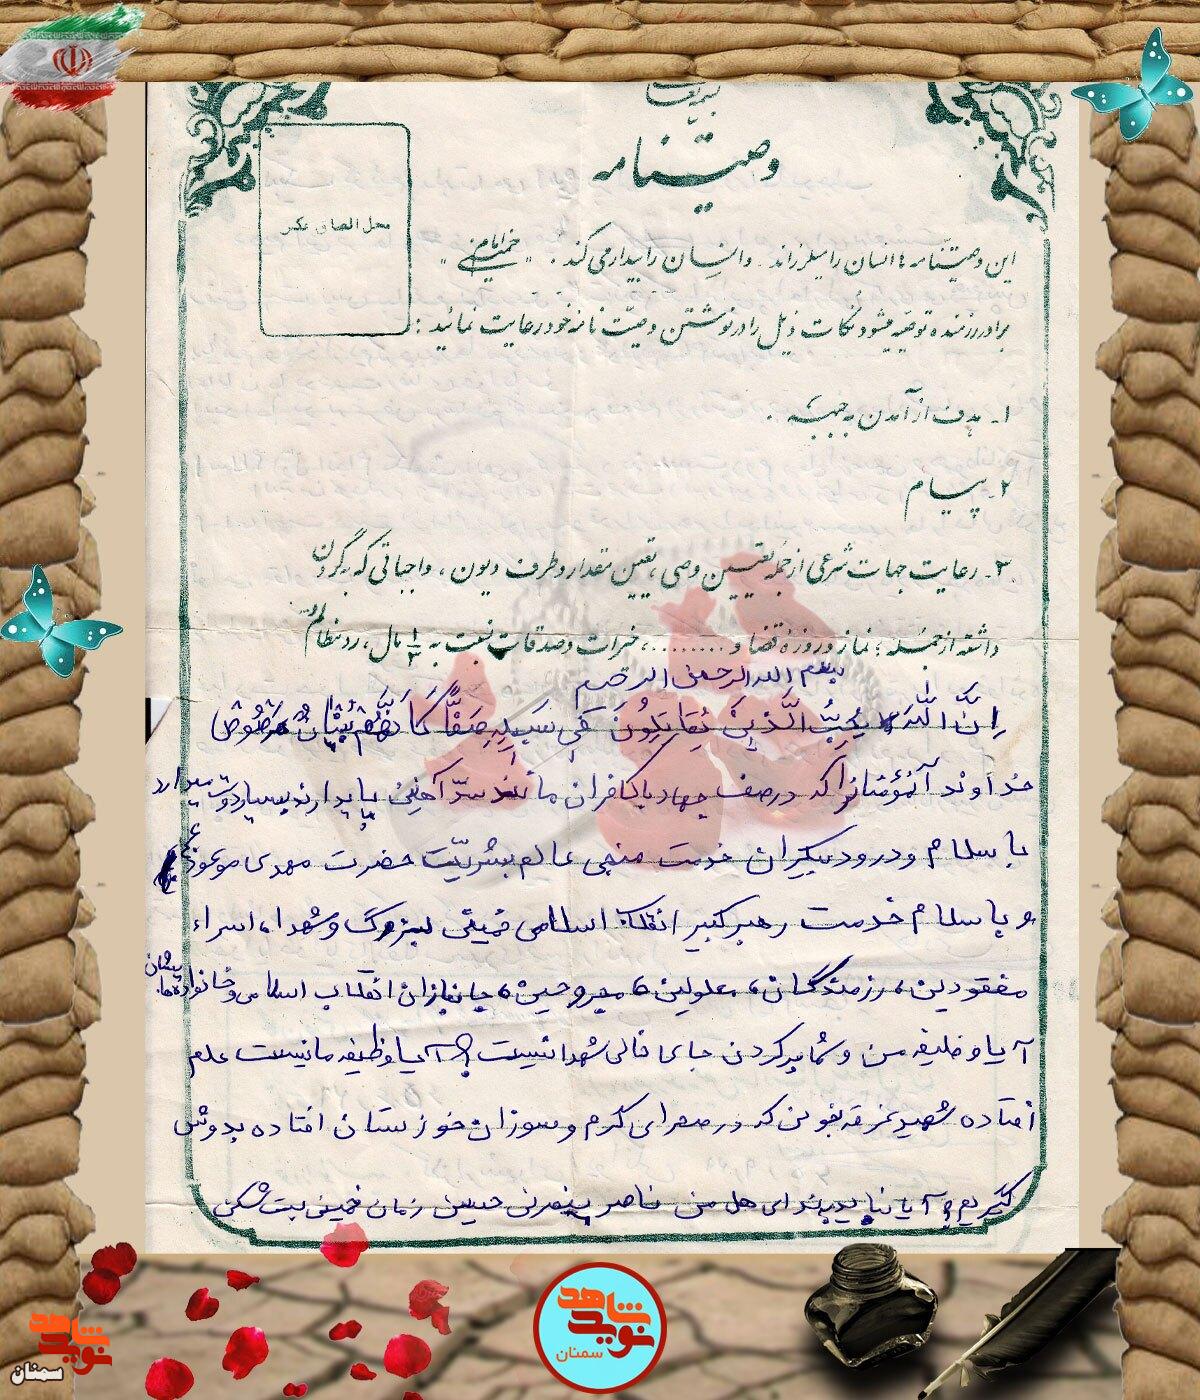 بسمه تعالی
وصیتنامه
محل الصاق عکس
این وصیتنامه ها انسان را میلرزاند و انسان را بیدار می کند . "امام خمینی"
برادر رزمنده توصیه میشود نکات ذیل را در نوشتن وصیت نامه خود رعایت نمائید :
۱- هدف از آمدن به جبهه .
۲- پیام
۳- رعایت جهات شرعی از جمله تعیین وصی ، تعیین مقدار و طرف دیون ، واجباتی که به گردن
داشته از جمله : نماز و روزه قضا و ........ ، خیرات و صدقات نسبت به ۱/۳ مال ، رد مظالم
بسم الله الرحمن الرحیم
اِنَّ اللّهَ یُحِبُّ الَّذینَ یُقاتِلُونَ فی سَبیلِهِ صَفّاً کَاَنَّهُم بُنْیانٌ مَرْصُوصٌ
خداوند آنمؤمنانرا که در صف جهاد با کافران مانند سدّ آهنی پایدارند بسیار دوست میدارد
با سلام و درود بیکران خدمت منجی عالم بشریّت حضرت مهدی موعود عج
و با سلام خدمت رهبر کبیر انقلاب اسلامی خمینی بزرگ و شهدا، اسراء
مفقودین، رزمندگان، معلولین، مجروحین، جانبازان انقلاب اسلامی و خانواده هایشان
آیا وظیفه من و شما پر کردن جای خالی شهدا نیست؟ آیا وظیفه ما نیست علم
افتاده شهید غرقه بخون که در صحرای گرم و سوزان خوزستان افتاده بدوش
گیریم و آیا نباید بندای هل من ناصر ینصرنی حسین زمان خمینی بت شکن
نوید شاهد
سمنان
نوید شاهد
سمنان